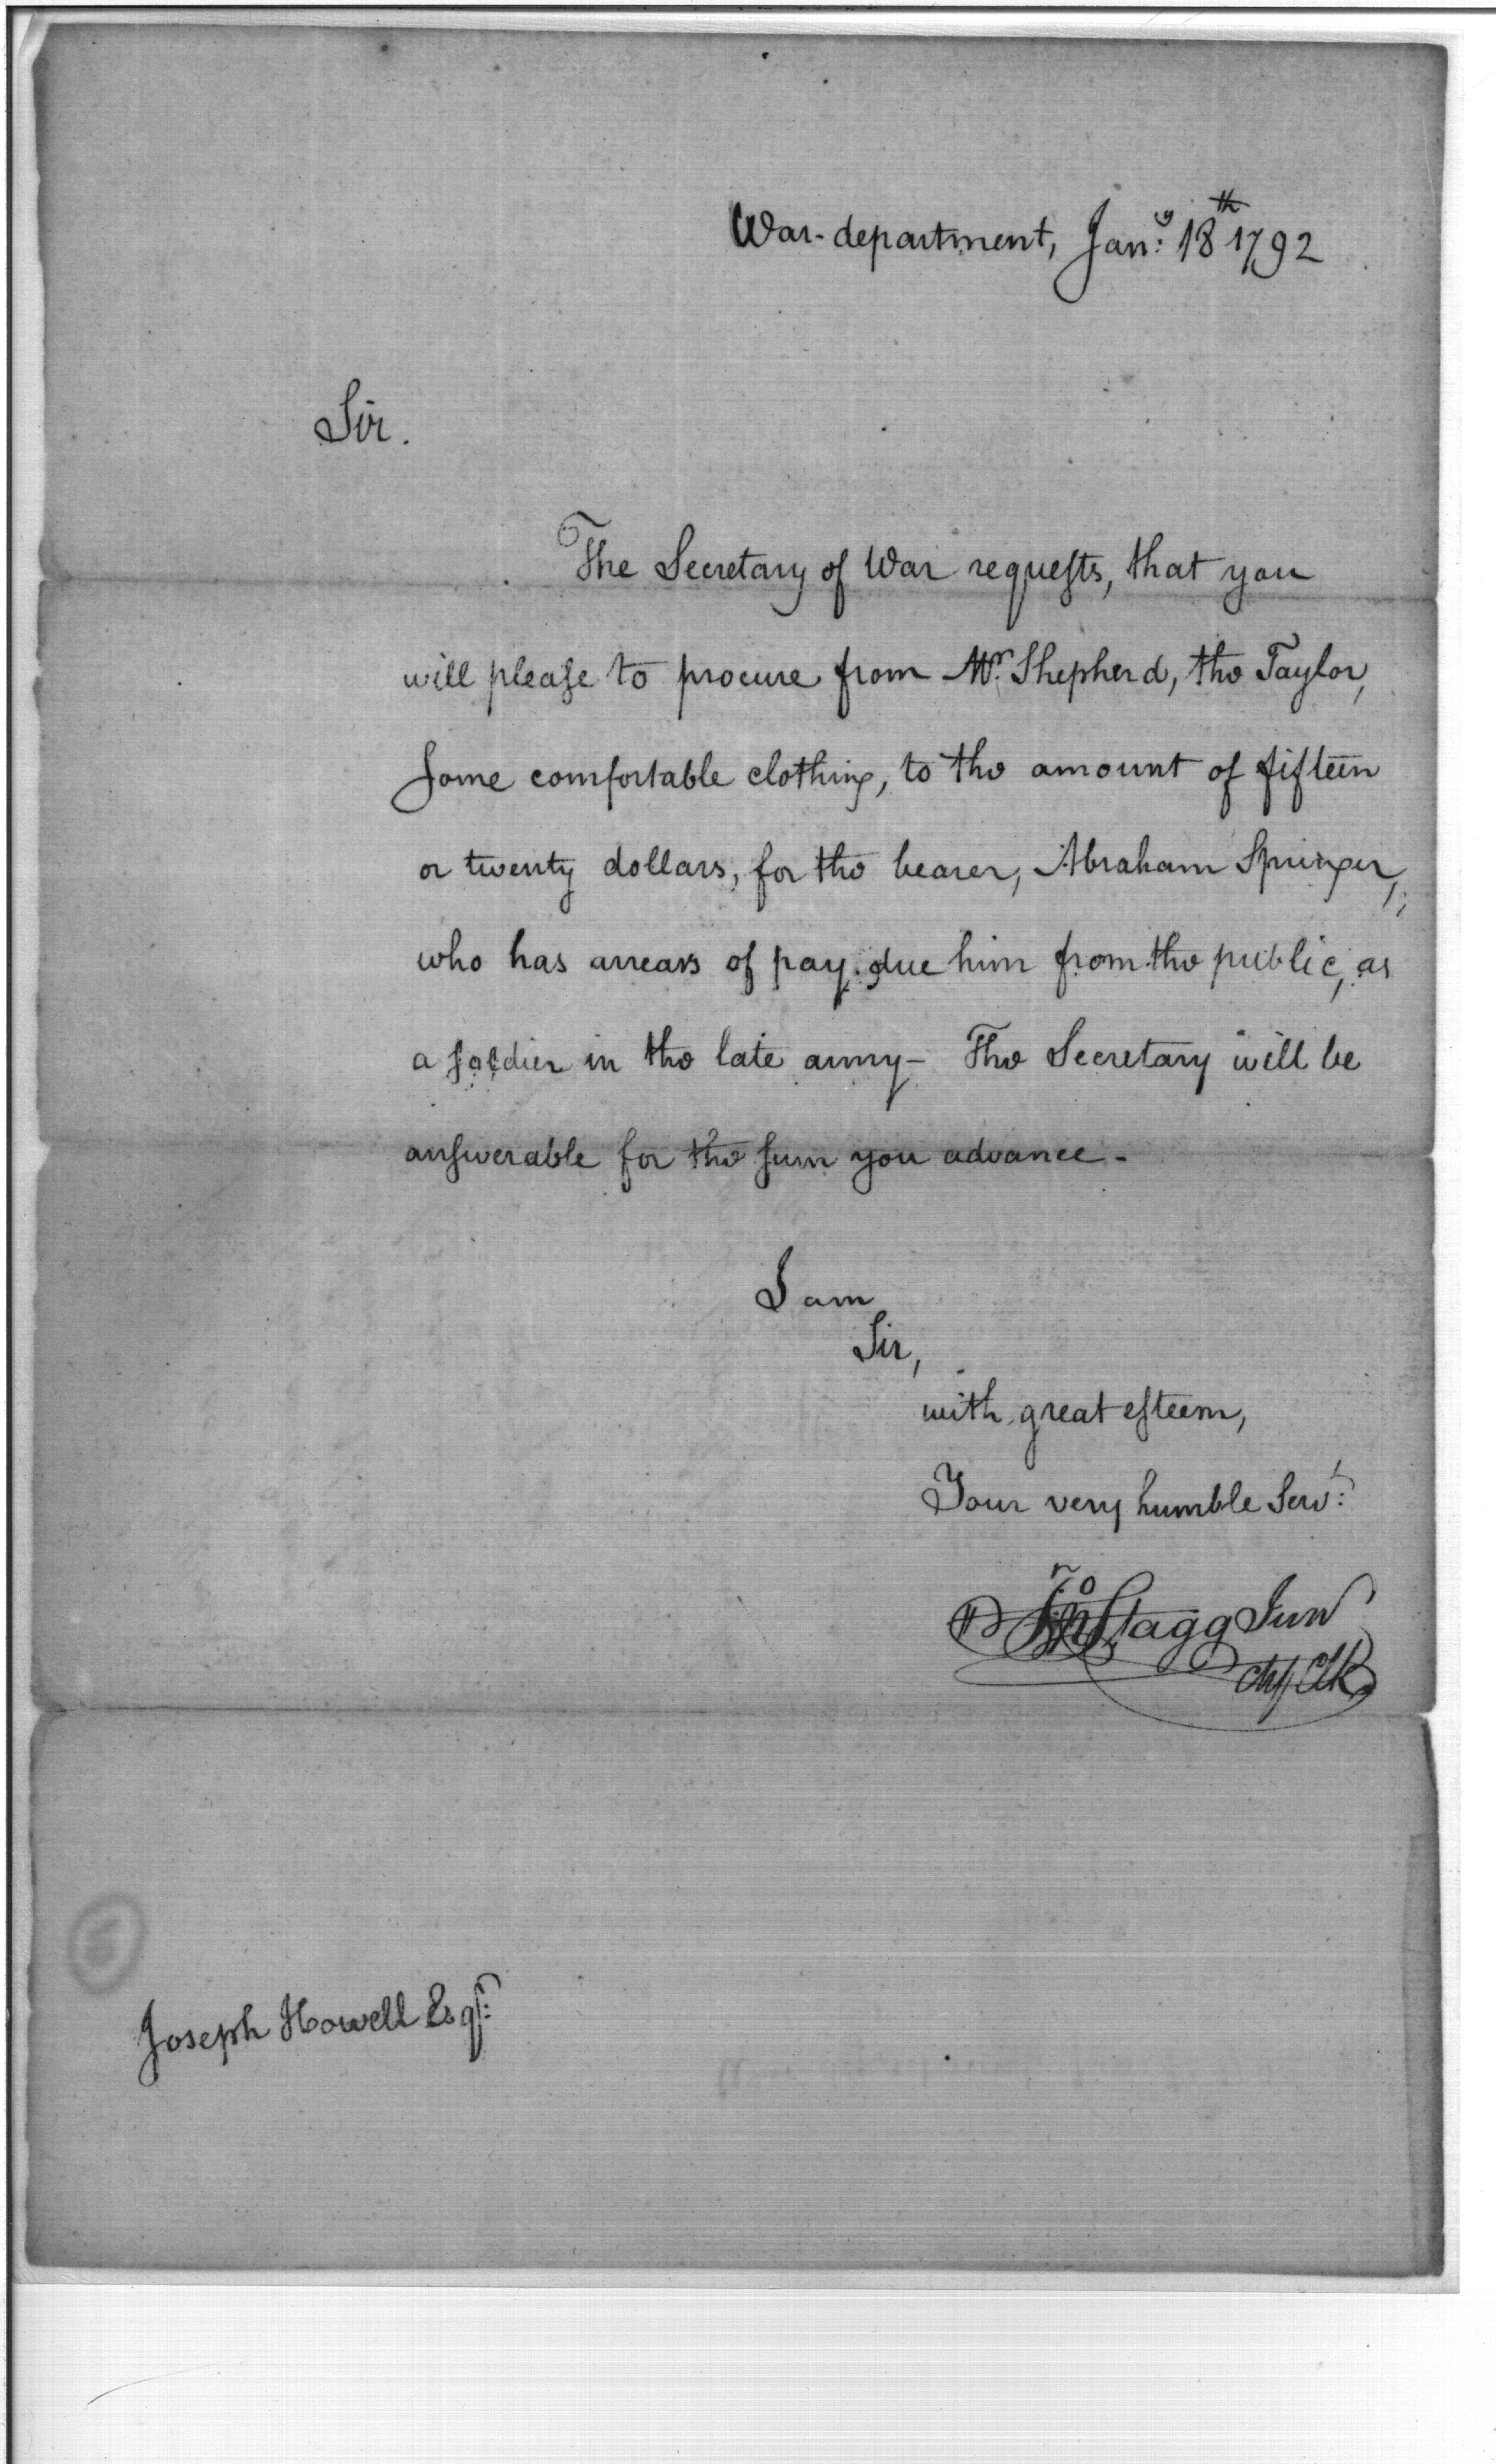 War-department, Jan:y 18th 1792
Sir.
The Secretary of War requests, that you
will please to procure from Mr. Shepherd, the Taylor,
some comfortable clothing, to the amount of fifteen
or twenty dollars, for the bearer, Abraham Springer,
who has arrears of pay due him from the public, as
a soldier in the late army - The Secretary will be
answerable for the sum you advance -
I am
Sir,
with great esteem,
Your very humble Serv:t
Jno Stagg Junr
Chf Clk
Joseph Howell Esqr: